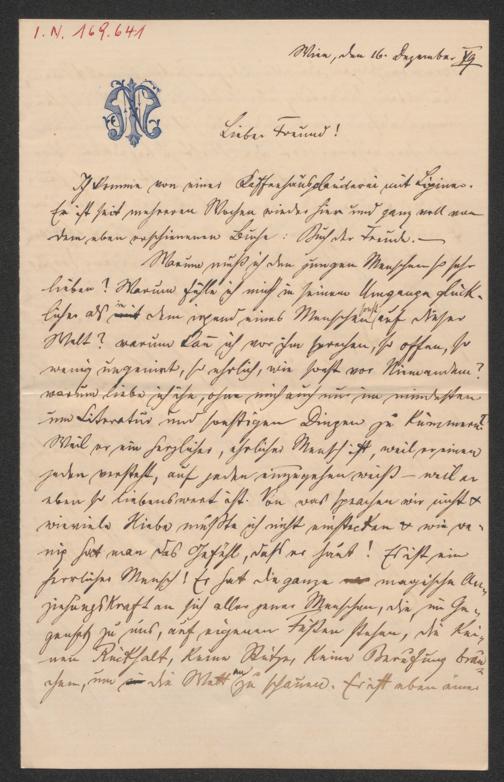 I. N. 169.641
Wien, den 16. Dezember 79
Lieber Freund!
Ich komme von einer Kaffeehausplauderei mit Lipiner.
Er ist seit mehreren Wochen wieder hier und ganz voll von
dem eben erschienenen Buche: Buch der Freude. —
Warum muß ich den jungen Menschen so sehr
lieben? Warum fühle ich mich in seinem Umgange glück-
licher als in dem irgend eines Menschen sonst auf dieser
Welt? warum kann ich vor ihm sprechen, so offen, so
wenig ungenirt, so ehrlich, wie sonst vor Niemandem?
warum liebe ich ihn, ohne mich auch nur im mindesten
um Literatur und sonstigen Dingen zu kümmern?
Weil er ein herzlicher, ehrlicher Mensch ist, weil er einen
jeden versteht, auf jeden einzugehen weiß — weil er
eben so liebenswert ist. Von was sprachen wir nicht &
wieviele Hiebe mußte ich nicht einstecken & wie we-
nig hat man das Gefühl, daß er haut! Er ist ein
herrlicher Mensch! Er hat die ganze magische An-
ziehungskraft an sich aller jener Menschen, die, im Ge-
gensatz zu uns, auf eigenen Füßen stehen, die kei-
nen Rückhalt, keine Stütze, keine Berufung brau-
chen, um in die Welt zu schauen. Er ist eben